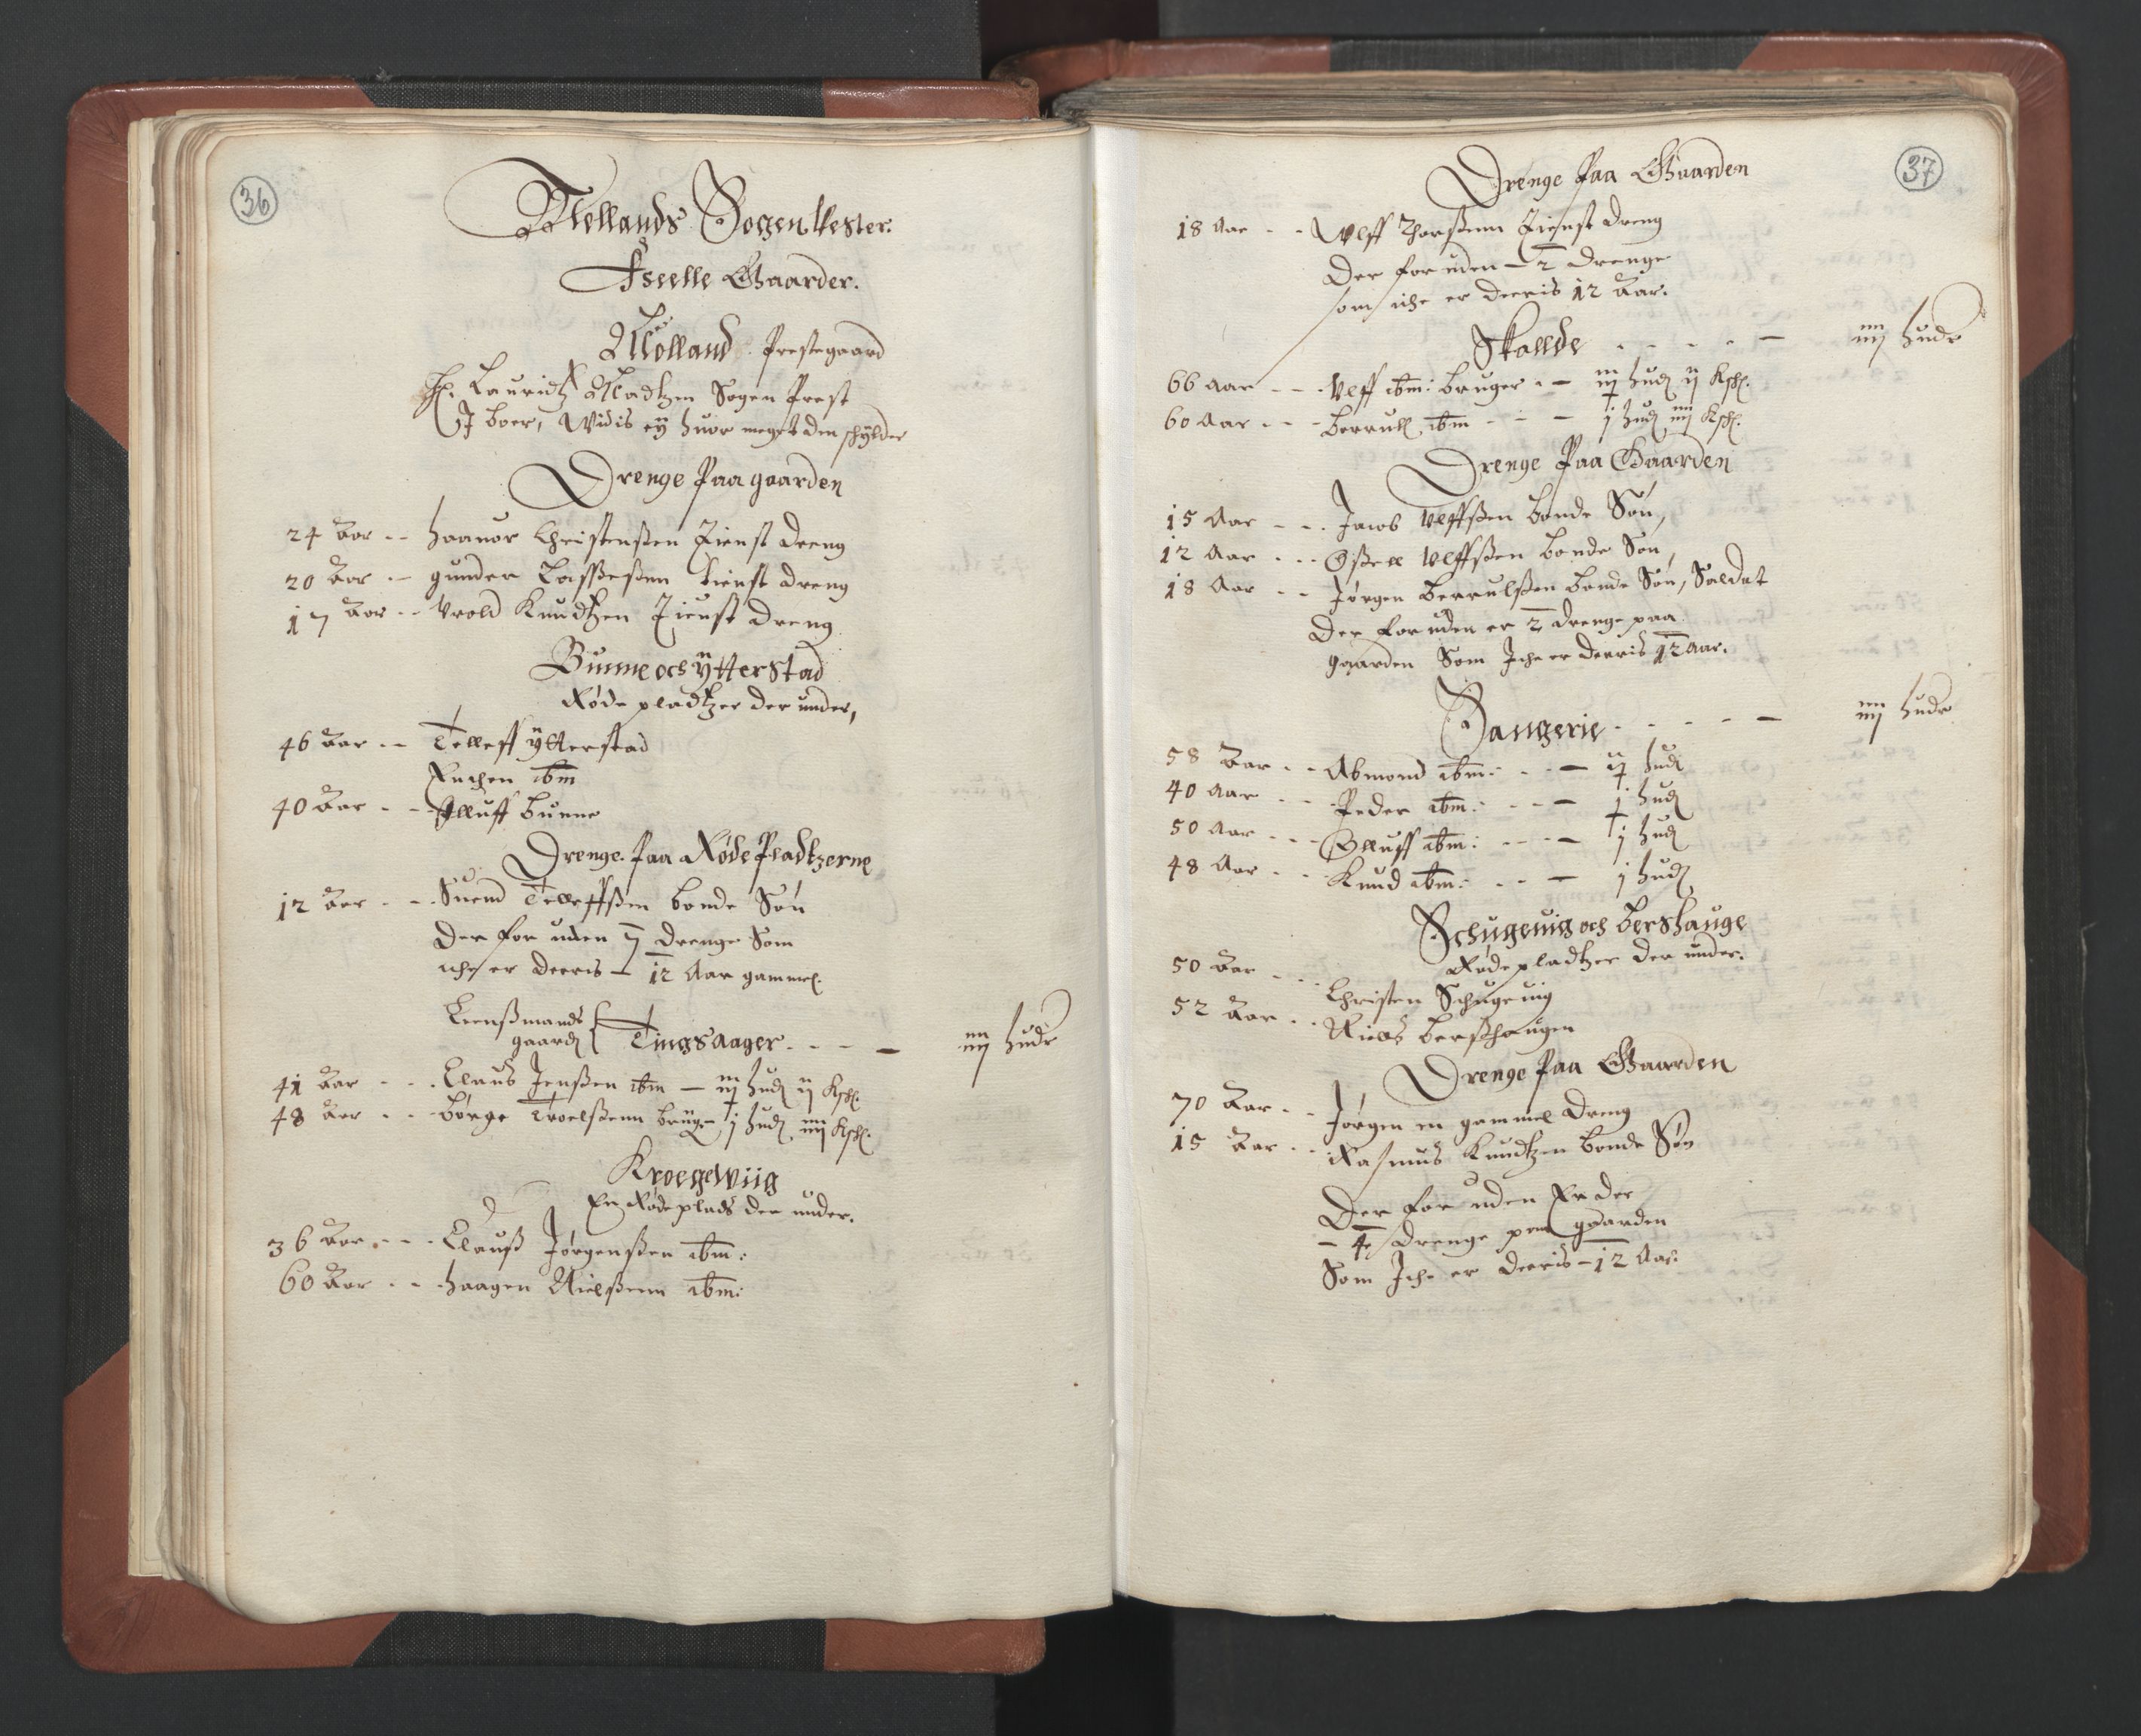 36
Møllands Sogen Vester.
Fseelle Gaarder.
Mølland Prestegaard
H. Lauridtz Madtzen Sogen Prest
I boer, Widis eÿ huor meget den schÿlder
Drenge Paa gaarden
24 Aar -- Haauor Christensen Tienst Dreng
20 Aar -- gunder Lasssesøen tienst dreng
17 Aar -- Vrold Knudtzen Tienst Dreng
Bunne och Ÿtterstad
Røde pladtzer der under,
46 Aar -- Telleff Ÿtterstad
Enchen ibm
40 Aar -- Olluff Bunne
Drenge Paa Røde Pladtzerne
12 Aar -- Suend Tellefssen bonde Søn
Der for uden ij drenge Som
iche er deris - 12 Aar gammel.
Lensmands
gaard Tingsaager - - - - iiij huder
41 Aar - - - Claus Jenssen ibm - iij hud ij Ksch.
48 Aar - - - Børge Troelssenn bruger j hud iiij Ksch.
Kroegewiig
En Røde plads der under.
36 Aar - - - Clauss Jørgenssen ibm:
60 Aar - - - Haagen Nielssenn ibm:
37
Drenge Paa Gaarden
18 Aar - - Vleff Thorssenn Tienst dreng
Der for uden - 2 drenge
som iche er deris 12 Aar.
Skallde - - - - - iiij huder
66 Aar - - - Vleff ibm: bruger - - iij hud ij Ksch.
60 Aar - - - Berrull ibm - - - j hud iiij Ksch.
Drenge Paa Gaarden
15 Aar - - - Jacob Vleffssen bonde Søn,
12 Aar - - - Ossell Vleffssen bonde Søn,
18 Aar - - Jørgen Berrulssen bonde Søn, Saldat
Der for uden er 2 drenge paa
gaarden Som Iche er derris 12 Aar.
Sangerie - - - - - iiij huder
58 Aar - - Abmond ibm: - - - ij hud
40 Aar - - - Peder ibm: - - - j hud
50 Aar - - - Olluff ibm: - - - j hud
48 Aar - - - Knud ibm: - - - j hud
Schugeuig och bershauge
Røde pladtzer der under.
50 Aar - - Christen Schugeuig
52 Aar - - Niels bershaugen
Drenge Paa Gaarden
70 Aar - - Jørgen en gammel Dreng
15 Aar - - Rasmus Knudtzen bonde Søn
Der for uden Er der
- 4 drenge paa gaarden
Som Iche er deeris - 12 Aar.